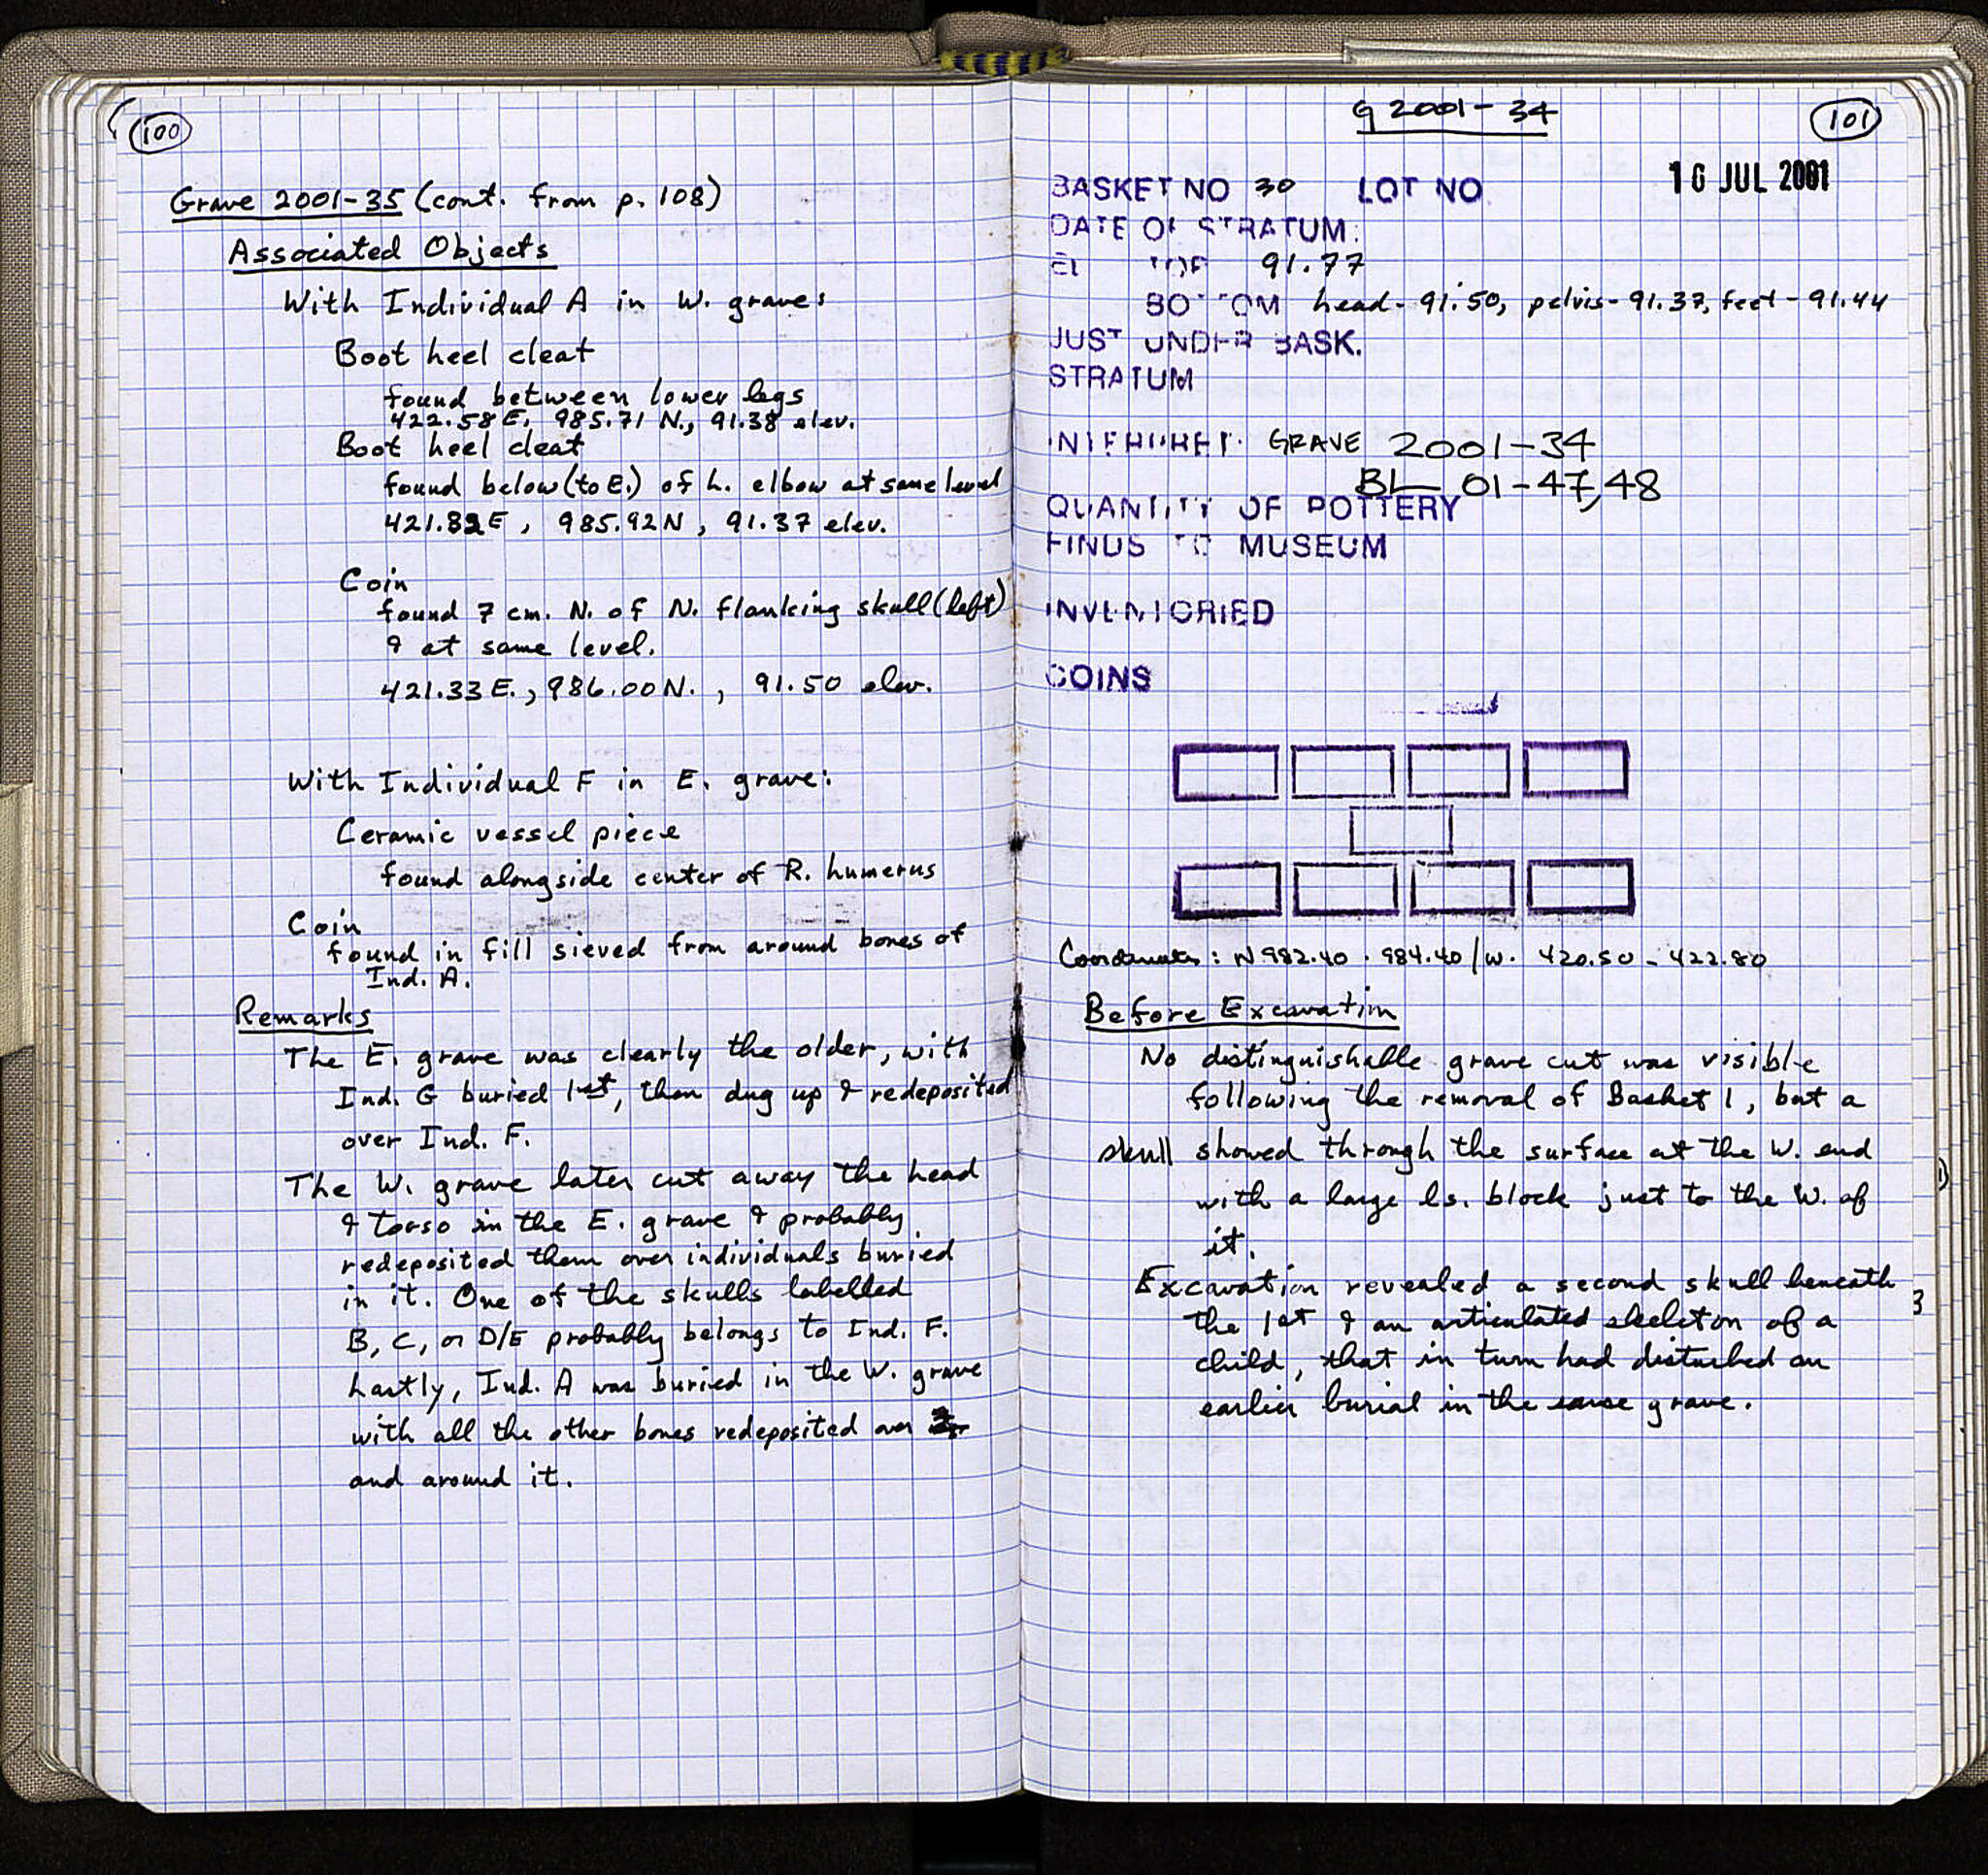 100
Grave 2001-35 (cont. from p. 108)
Associated Objects
With Individual A in W. grave:
Boot heel cleat
found between lower legs
422.58 E, 985.71 N., 91.38 elev.
Boot heel cleat
found below (to E.) of L. elbow at same level
421.82E, 985.92N, 91.37 elev.
Coin
found 7 cm. N. of N. flanking skull (left)
& at same level.
421.33 E., 986.00 N., 91.50 elev.
With Individual F in E. grave:
Ceramic vessel piece
found alongside center of R. humerus
Coin
found in fill sieved from around bones of
Ind. A.
Remarks
The E. grave was clearly the older, with
Ind. G buried 1st, then dug up & redeposited
over Ind. F.
The W. grave later cut away the head
& torso in the E. grave & probably
redeposited them over individuals buried
in it. One of the skulls labelled
B, C, or D/E probably belongs to Ind. F.
Lastly, Ind. A was buried in the W. grave
with all the other bones redeposited over
and around it.
G 2001-34
101
16 JUL 2001
BASKET NO 30 LOT NO
DATE OF STRATUM:
EL TOP 91.77
BOTTOM head - 91.50, pelvis - 91.37, feet - 91.44
JUST UNDER BASK.
STRATUM
INTERPRET. GRAVE 2001-34
BL 01-47,48
QUANTITY OF POTTERY
FINDS TO MUSEUM
INVENTORIED
COINS
Coordinates: N 982.40 - 984.40 / W. 420.50 - 422.80
Before Excavation
No distinguishable grave cut was visible
following the removal of Basket 1, but a
skull showed through the surface at the W. end
with a large ls. block just to the W. of
it.
Excavation revealed a second skull beneath
the 1st & an articulated skeleton of a
child, that in turn had disturbed an
earlier burial in the same grave.
3